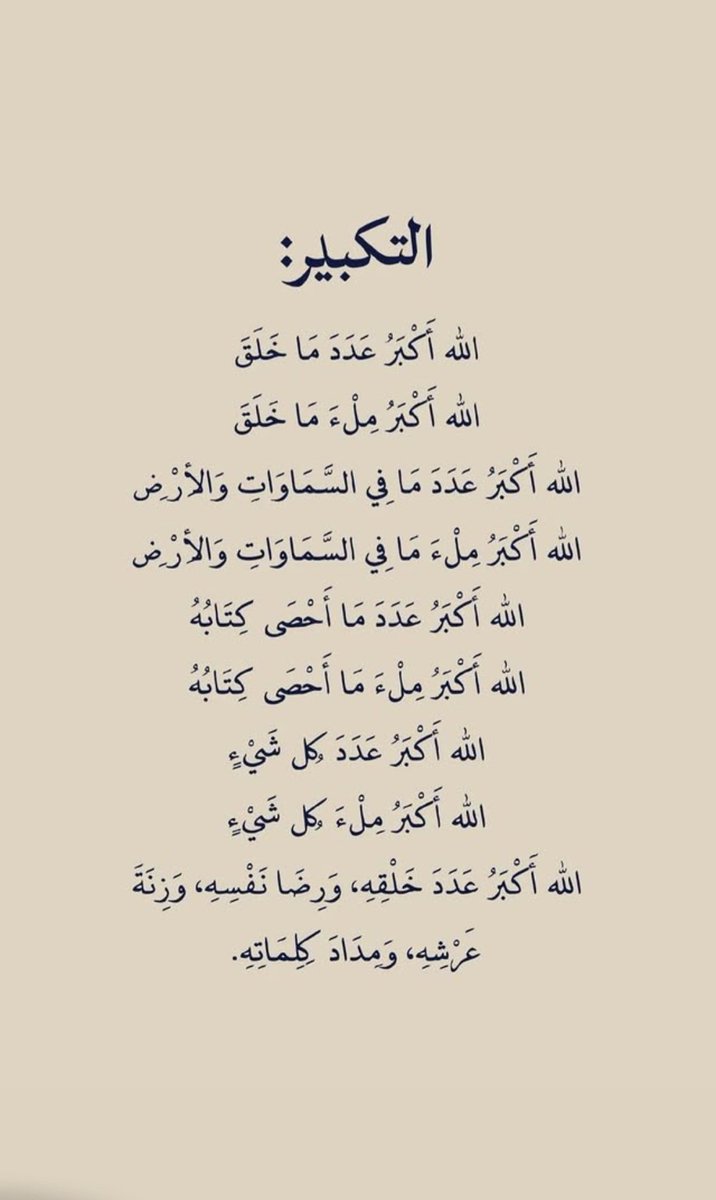 التكبير:
الله أَكْبَرُ عَدَدَ مَا خَلَقَ
الله أَكْبَرُ مِلْءَ مَا خَلَقَ
الله أَكْبَرُ عَدَدَ مَا فِي السَّمَاوَاتِ وَالأرْضِ
الله أَكْبَرُ مِلْءَ مَا فِي السَّمَاوَاتِ وَالأرْضِ
الله أَكْبَرُ عَدَدَ مَا أَحْصَى كِتَابُهُ
الله أَكْبَرُ مِلْءَ مَا أَحْصَى كِتَابُهُ
الله أَكْبَرُ عَدَدَ كُل شَيْءٍ
الله أَكْبَرُ مِلْءَ كُل شَيْءٍ
الله أَكْبَرُ عَدَدَ خَلْقِهِ، وَرِضَا نَفْسِهِ، وَزِنَةَ
عَرْشِهِ، وَمِدَادَ كِلِمَاتِهِ.